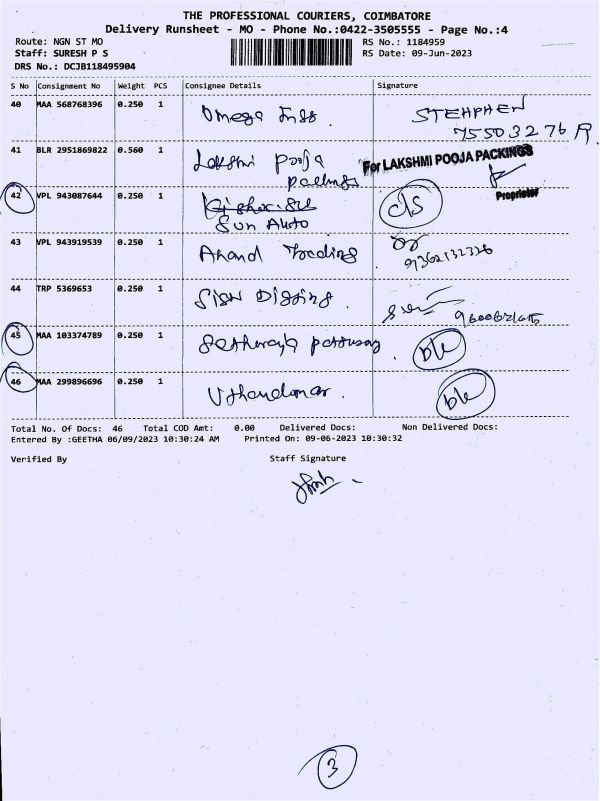 THE PROFESSIONAL COURIERS, COIMBATORE
Delivery Runsheet - MO - Phone No.:0422-3505555 - Page No.:4
Route: NGN ST MO RS No.: 1184959
Staff: SURESH P S RS Date: 09-Jun-2023
DRS No.: DCJB118495904
S No Consignment No Weight PCS Consignee Details Signature
40 MAA 568768396 0.250 1 Omega STEHPHEN
75503276
41 BLR 2951869822 0.560 1 Lakshmi Pooja For LAKSHMI POOJA PACKINGS
Proprietor
42 VPL 943087644 0.250 1
Sun Auto
43 VPL 943919539 0.250 1 Anand Trading
9362132326
44 TRP 5369653 0.250 1
45 MAA 103374789 0.250 1
46 MAA 299896696 0.250 1
Total No. Of Docs: 46 Total COD Amt: 0.00 Delivered Docs: Non Delivered Docs:
Entered By :GEETHA 06/09/2023 10:30:24 AM Printed On: 09-06-2023 10:30:32
Verified By Staff Signature
3